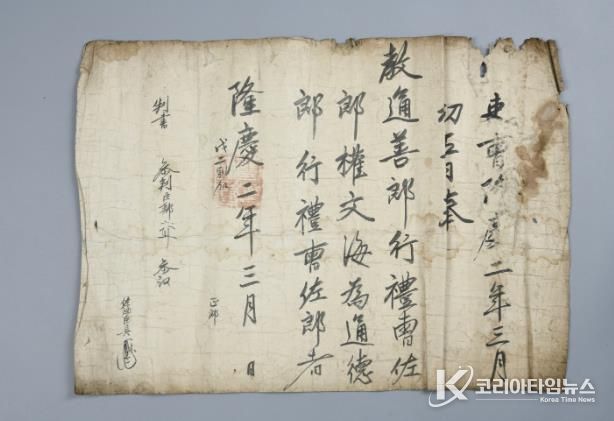 吏曹隆慶二年三月
初五日奉
教通善郎行禮曹佐
郎權文海為通德
郎行禮曹佐郎者
隆慶二年三月 日
正郎
判書 參判臣 參議
코리아타임뉴스
Korea Time News